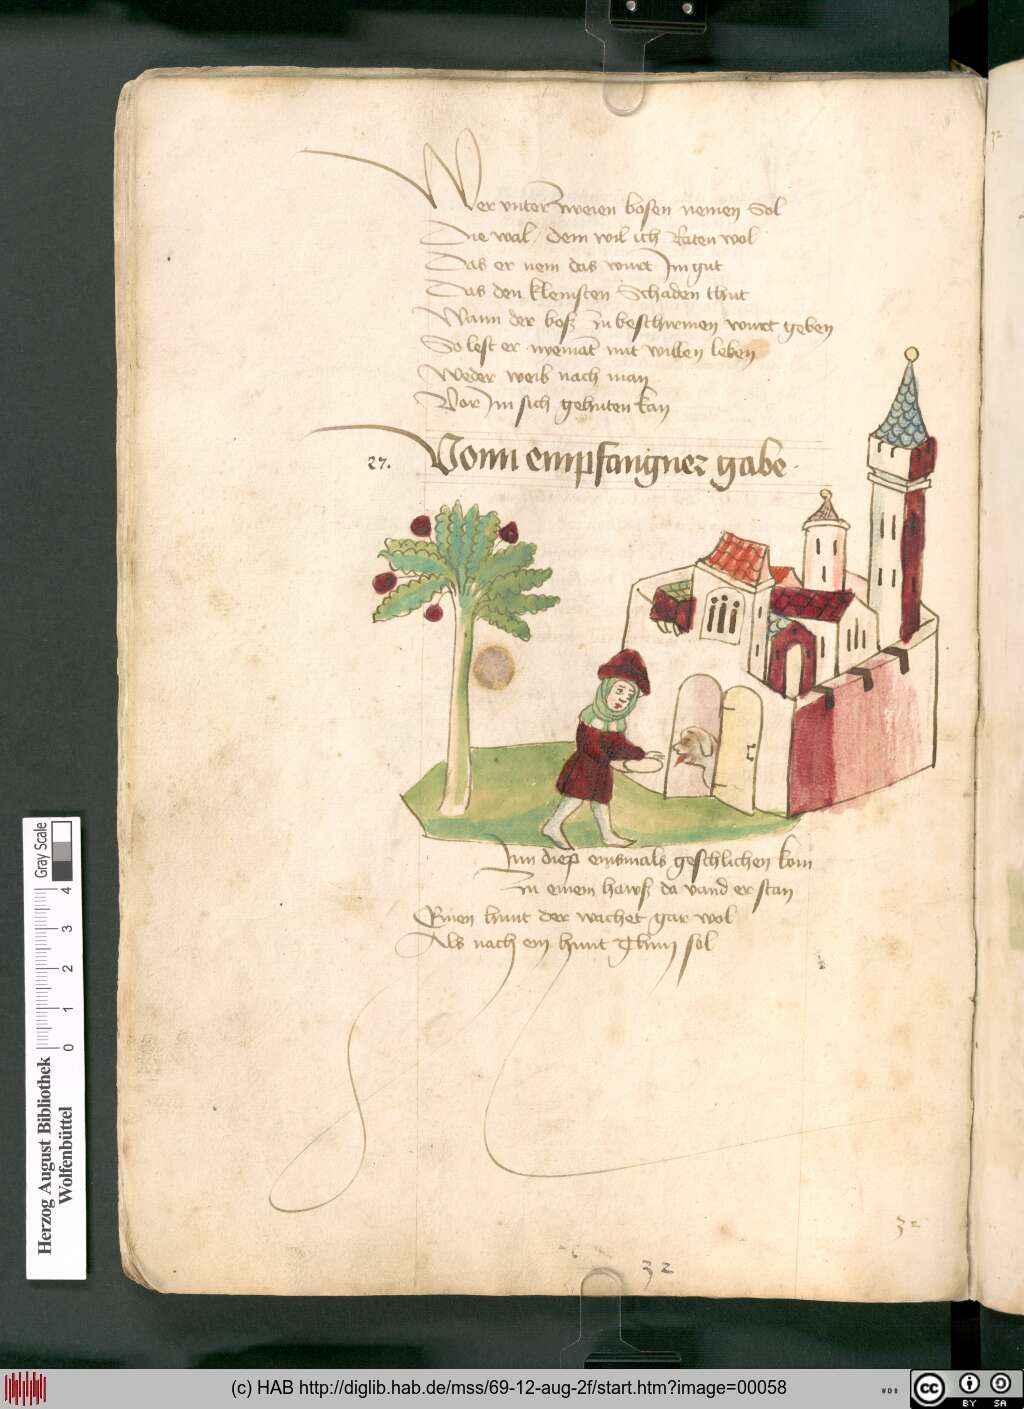 Wer unter zweien bosen nemen Sol
Die wal / dem wil ich Raten wol
Das er nem das wurt Im gut
Das den kleinsten Schaden thut
Wann der boß zu beschirmen wurt geben
So lest er nyemāt mit willen leben
Weder weib nach man
Vor Im sich gehuten kan
27. Vonn empfangner gabe.
Inn diep einsmals geschlichen kom
Zu einem hawß da vand er stan
Einen hunt der wachet gar wol
Als nach ein hunt Thun sol
32
32
Herzog August Bibliothek
Wolfenbüttel
0 1 2 3 4
Gray Scale
(c) HAB http://diglib.hab.de/mss/69-12-aug-2f/start.htm?image=00058
WDB
cc BY SA